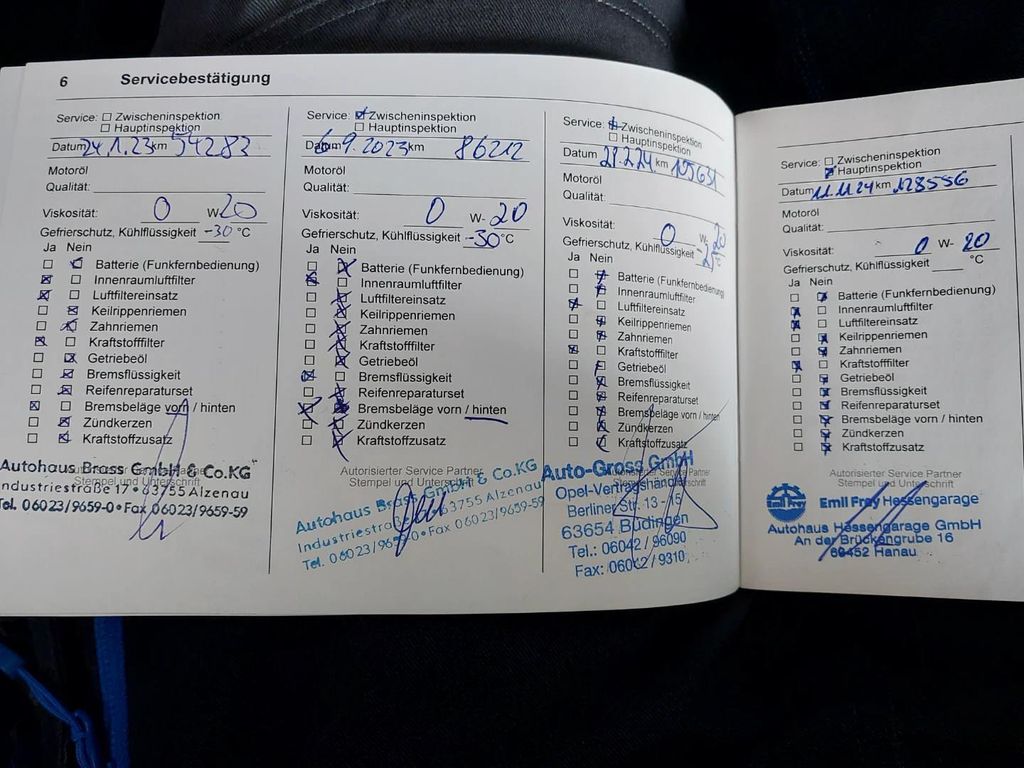 6 Servicebestätigung
Service: ☐ Zwischeninspektion
☐ Hauptinspektion
Datum 24.1.23 km 54282
Motoröl
Qualität:
Viskosität: 0 W 20
Gefrierschutz, Kühlflüssigkeit -30 °C
Ja Nein
☐ ☒ Batterie (Funkfernbedienung)
☒ ☐ Innenraumluftfilter
☒ ☐ Luftfiltereinsatz
☐ ☒ Keilrippenriemen
☐ ☒ Zahnriemen
☒ ☐ Kraftstofffilter
☐ ☒ Getriebeöl
☐ ☒ Bremsflüssigkeit
☐ ☒ Reifenreparaturset
☒ ☐ Bremsbeläge vorn / hinten
☐ ☒ Zündkerzen
☐ ☒ Kraftstoffzusatz
Autorisierter Service Partner
Stempel und Unterschrift
Autohaus Brass GmbH & Co.KG
Industriestraße 17 • 63755 Alzenau
Tel. 06023/9659-0 • Fax 06023/9659-59
Service: ☒ Zwischeninspektion
☐ Hauptinspektion
Datum 6.9.2023 km 86212
Motoröl
Qualität:
Viskosität: 0 W- 20
Gefrierschutz, Kühlflüssigkeit -30 °C
Ja Nein
☐ ☒ Batterie (Funkfernbedienung)
☒ ☐ Innenraumluftfilter
☐ ☒ Luftfiltereinsatz
☐ ☒ Keilrippenriemen
☐ ☒ Zahnriemen
☐ ☒ Kraftstofffilter
☐ ☒ Getriebeöl
☒ ☐ Bremsflüssigkeit
☐ ☒ Reifenreparaturset
☒ Bremsbeläge vorn / hinten
☐ ☒ Zündkerzen
☐ ☒ Kraftstoffzusatz
Autorisierter Service Partner
Stempel und Unterschrift
Autohaus Brass GmbH & Co.KG
Industriestraße 63755 Alzenau
Tel. 06023/9659-0 • Fax 06023/9659-59
Service: ☒ Zwischeninspektion
☐ Hauptinspektion
Datum km 105631
Motoröl
Qualität:
Viskosität: 0 W- 20
Gefrierschutz, Kühlflüssigkeit °C
Ja Nein
☐ ☒ Batterie (Funkfernbedienung)
☐ ☒ Innenraumluftfilter
☒ ☐ Luftfiltereinsatz
☐ ☒ Keilrippenriemen
☐ ☒ Zahnriemen
☒ ☐ Kraftstofffilter
☐ ☒ Getriebeöl
☐ ☒ Bremsflüssigkeit
☐ ☒ Reifenreparaturset
☐ ☒ Bremsbeläge vorn / hinten
☐ ☒ Zündkerzen
☐ ☒ Kraftstoffzusatz
Autorisierter Service Partner
Auto-Gross GmbH
Opel-Vertragshändler
Berliner Str. 13 - 15
63654 Büdingen
Tel.: 06042 / 96090
Fax: 06042 / 9310
Service: ☐ Zwischeninspektion
☒ Hauptinspektion
Datum 11.11.24 km 128556
Motoröl
Qualität:
Viskosität: 0 W- 20
Gefrierschutz, Kühlflüssigkeit °C
Ja Nein
☐ ☒ Batterie (Funkfernbedienung)
☒ ☐ Innenraumluftfilter
☒ ☐ Luftfiltereinsatz
☐ ☒ Keilrippenriemen
☐ ☒ Zahnriemen
☒ ☐ Kraftstofffilter
☐ ☒ Getriebeöl
☐ ☒ Bremsflüssigkeit
☐ ☒ Reifenreparaturset
☐ ☒ Bremsbeläge vorn / hinten
☐ ☒ Zündkerzen
☐ ☒ Kraftstoffzusatz
Autorisierter Service Partner
Stempel und Unterschrift
Emil Frey Emil Frey Hessengarage
Autohaus Hessengarage GmbH
An der Brückengrube 16
63452 Hanau